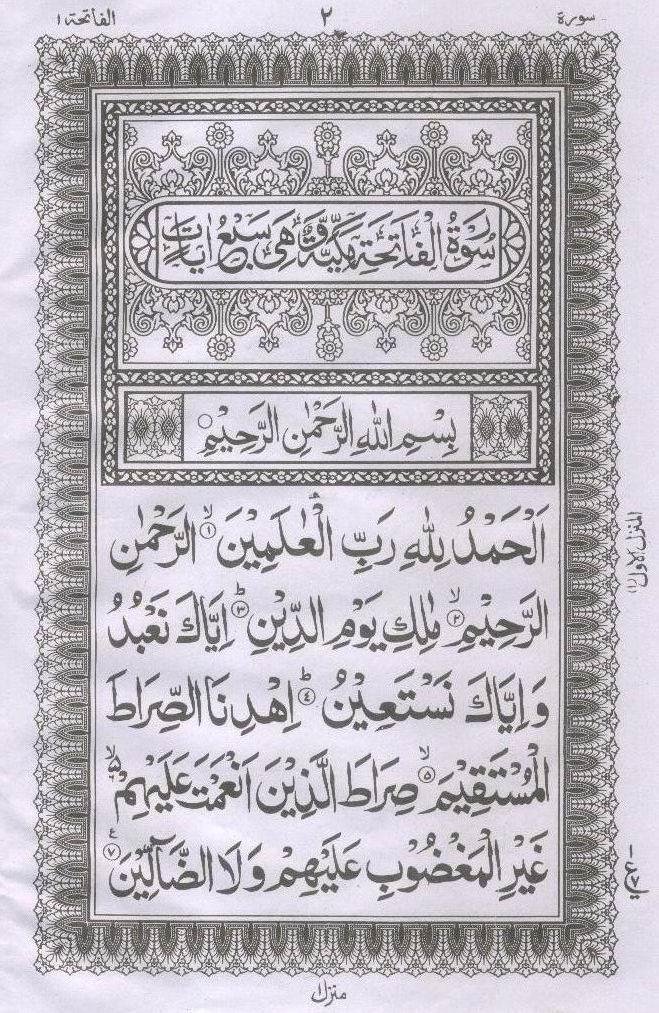 سورة ٢ الفاتحة ١
سُوْرَةُ الْفَاتِحَةِ مَكِّيَّةٌ وَّهِىَ سَبْعُ اٰيَاتٍ
بِسْمِ اللّٰهِ الرَّحْمٰنِ الرَّحِيْمِ
اَلْحَمْدُ لِلّٰهِ رَبِّ الْعٰلَمِيْنَ ۙ﴿١﴾ الرَّحْمٰنِ
الرَّحِيْمِ ۙ﴿٢﴾ مٰلِكِ يَوْمِ الدِّيْنِ ؕ﴿٣﴾ اِيَّاكَ نَعْبُدُ
وَ اِيَّاكَ نَسْتَعِيْنُ ؕ﴿٤﴾ اِهْدِنَا الصِّرَاطَ
الْمُسْتَقِيْمَ ۙ﴿٥﴾ صِرَاطَ الَّذِيْنَ اَنْعَمْتَ عَلَيْهِمْ ۙ
غَيْرِ الْمَغْضُوْبِ عَلَيْهِمْ وَ لَا الضَّآلِّيْنَ ﴿٧﴾ ع
المنزل الاول (١)
منزل ١